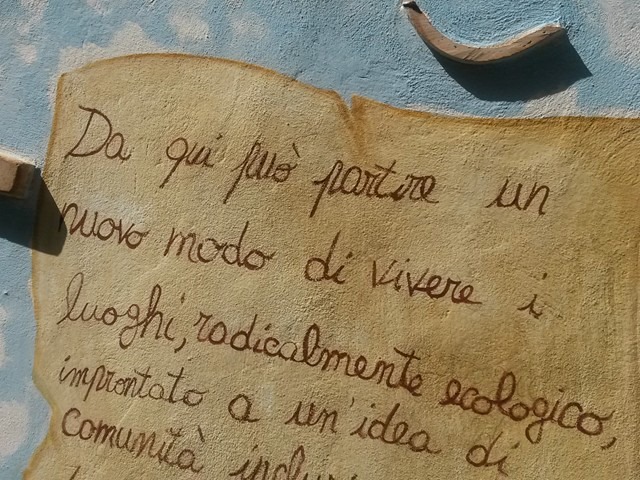 Da qui può partire un
nuovo modo di vivere i
luoghi, radicalmente ecologico,
improntato a un'idea di
comunità